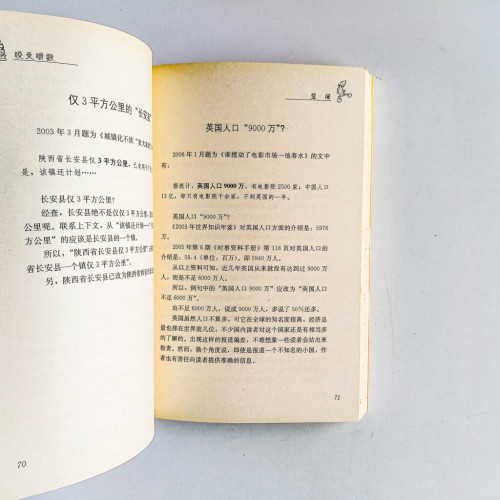 咬文嚼数
仅3平方公里的“长安县
2003年3月题为《城镇化不该“贪大
陕西省长安县仅3平方公里，已
是，该镇还计划……
长安县仅3平方公里？
经查，长安县绝不是仅仅3平方公
公里呢。联系上下文，从“该镇还计划
方公里”的应该是长安县的一个镇。
所以，“陕西省长安县仅3平方公里
省长安县一个镇仅3平方公里”。
另，陕西省长安县已改为陕西省西安
70
英国人口“9000万”？
2006年1月题为《谁搅动了电影市场一池春水》的文中
有：
据统计，英国人口9000万，有电影院2500家；中国人口
13亿，每只有电影院千余家，不到英国的一半。
英国人口“9000万”？
《2003年世界知识年鉴》对英国人口方面的介绍是：5976
万。
2005年第6期《时事资料手册》第118页对英国人口的
介绍是：59.4（单位，百万），即5940万人。
从以上资料可知，近几年英国从来就没有达到过9000万
人，而是不足6000万人。
所以，例句中的“英国人口9000万”应改为“英国人口不
足6000万”。
由不足6000万人，说成9000万人，多说了50%还多。
英国虽然人口不算多，可它在全球的知名度很高，经济总
量也排在世界前几位，不少国内读者对这个国家还是有相当多
的了解的。出现这样的报道偏差，不难想象一些读者会站出来
检责。然而，换个角度说，即使是报道一个不知名的小国，作
者也有责任向读者提供准确的信息。
71